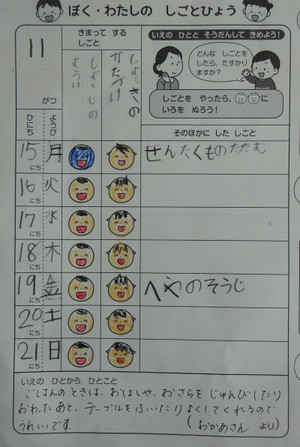 ぼく・わたしの しごとひょう
11
がつ
ひにち
ようび
きまって する
しごと
しょくじの
ようい
しょっきの
かたづけ
いえの ひとと そうだんして きめよう！
どんな しごとを
したら、たすかり
ますか？
しごとを やったら、
いろを ぬろう！
そのほかに した しごと
15にち 月 せんたくものたたむ
16にち 火
17にち 水
18にち 木
19にち 金 へやのそうじ
20にち 土
21にち 日
いえの ひとから ひとこと
ごはんのときは、おはしや、おさらをじゅんびしたり
おわったあと、テーブルをふいたりよくしてくれるので
うれしいです。
（おかあさん より）